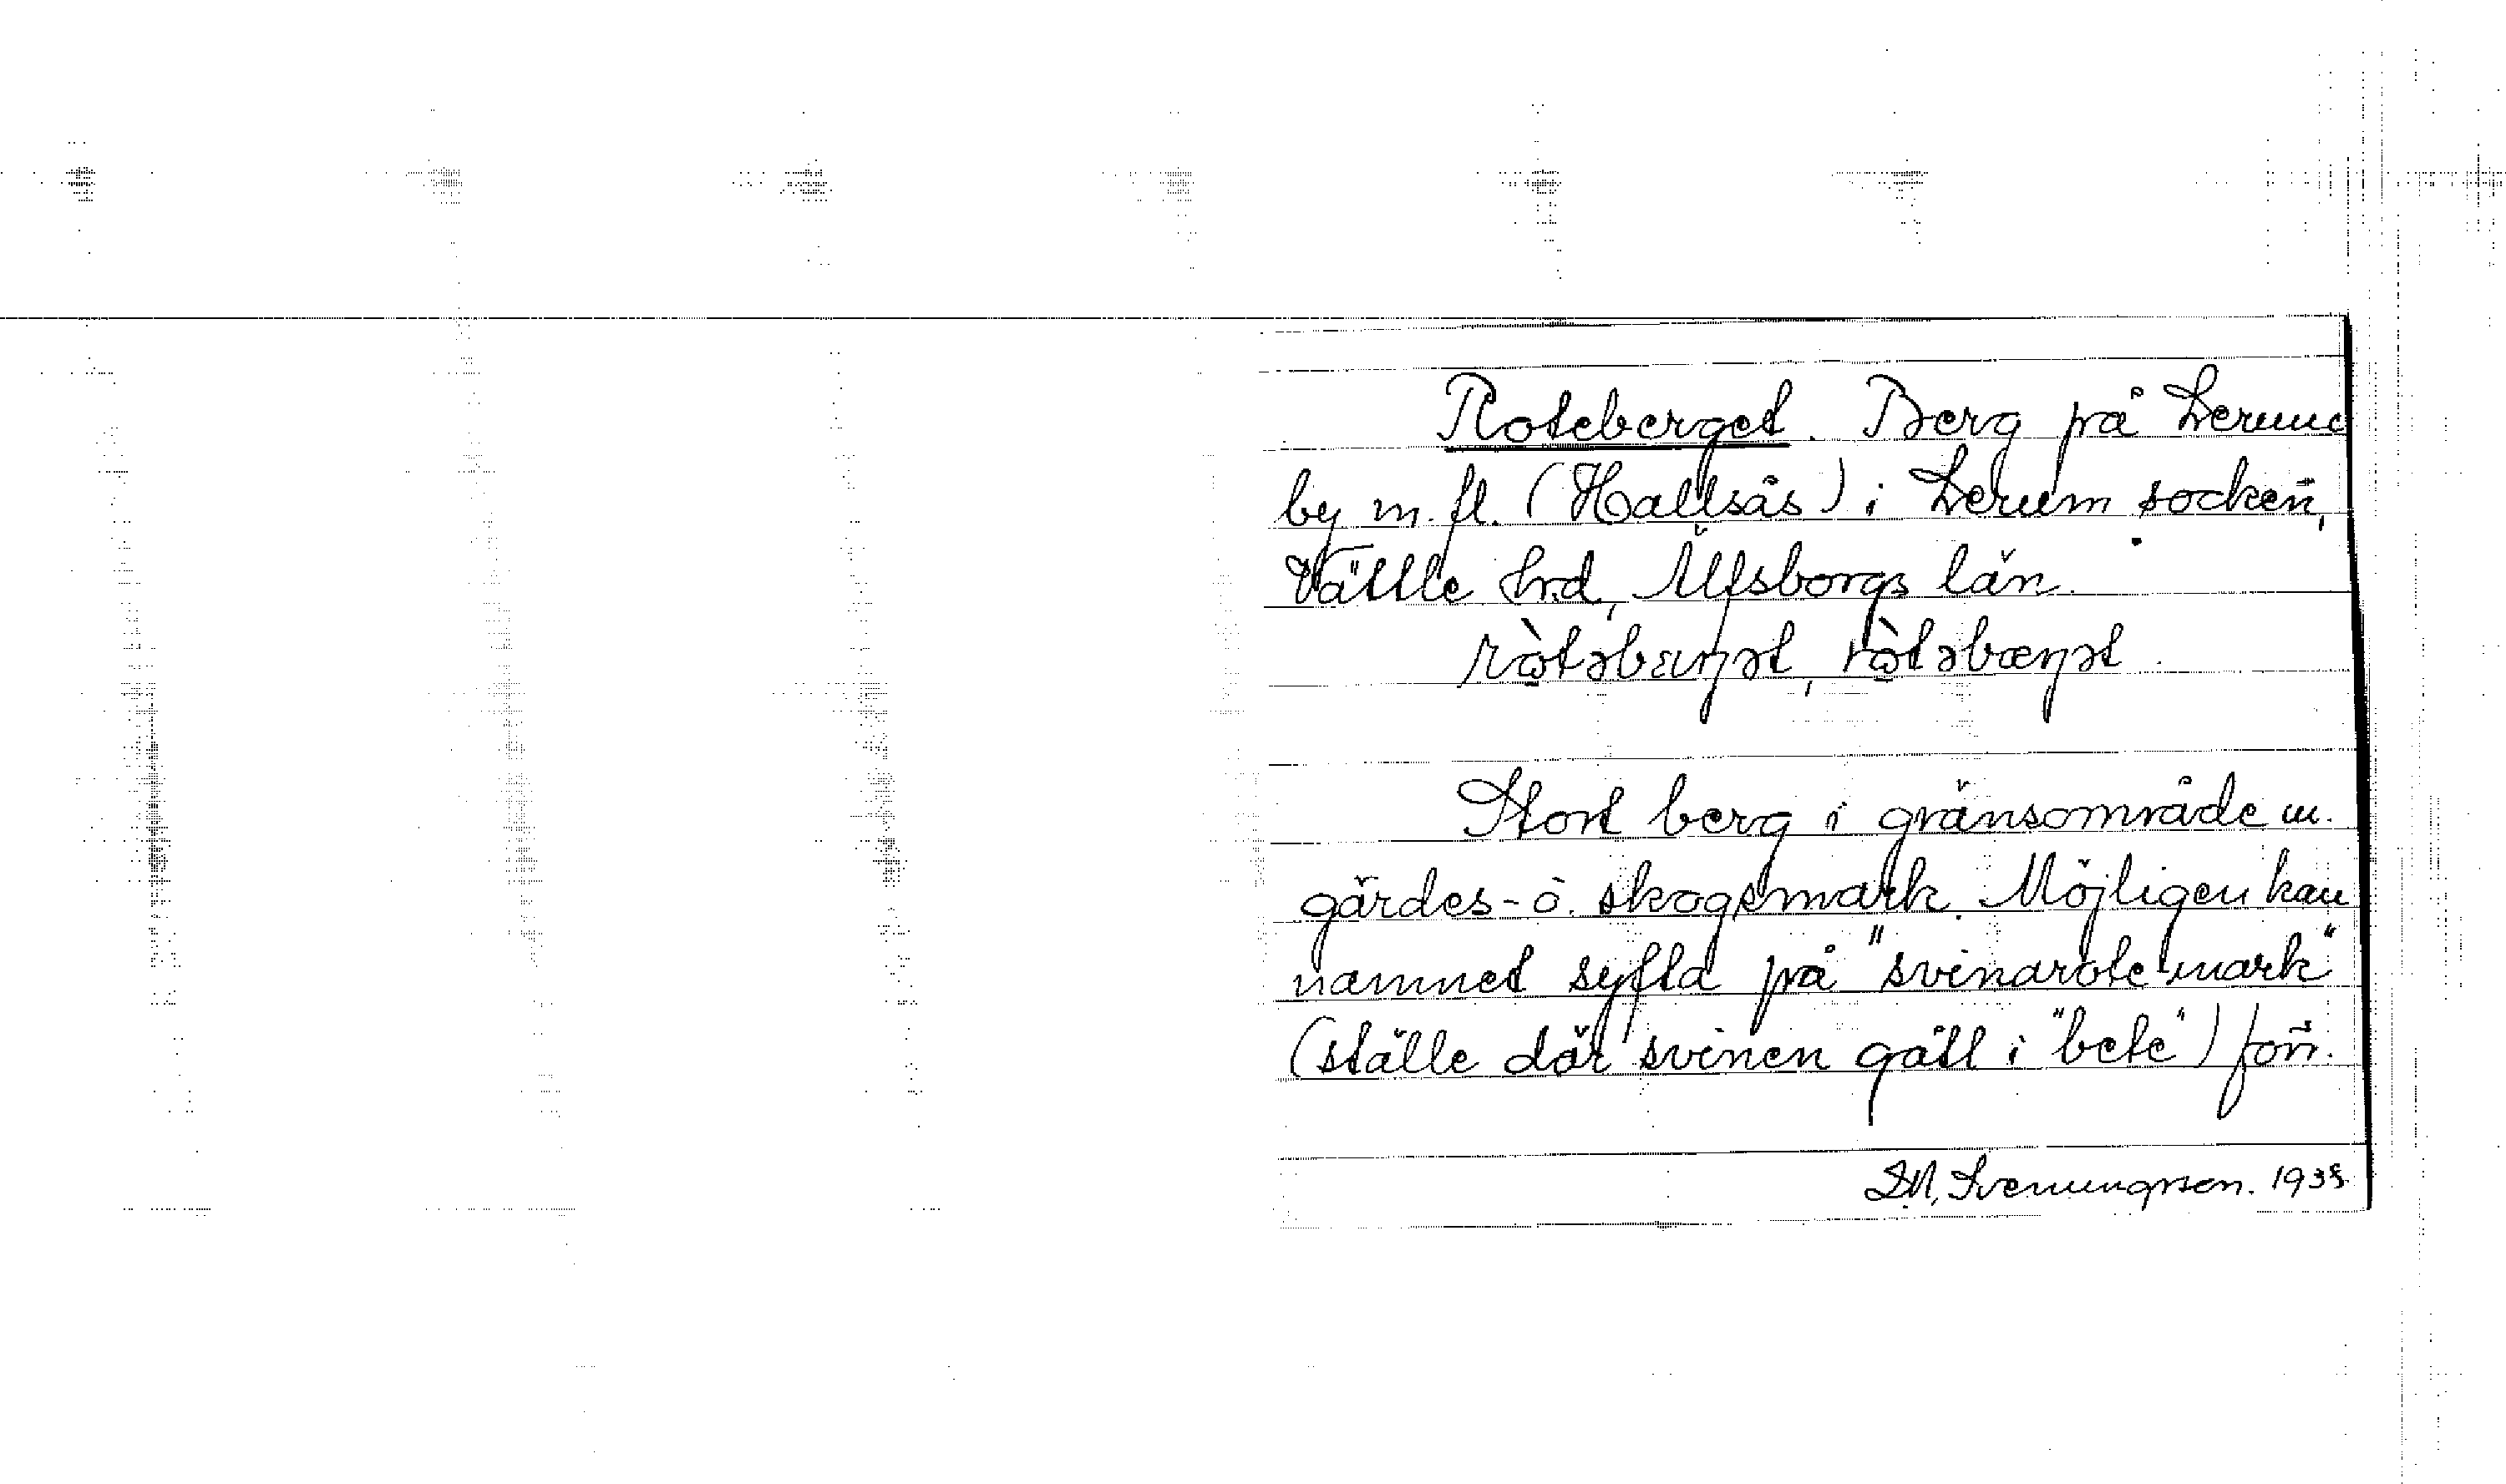 Roteberget. Berg på Lerums
by m.fl. (Hallsås) i Lerum socken,
Vättle hrd, Älfsborgs län.
Stort berg i gränsområde m.
gärdes- o. skogsmark. Möjligen kan
namnet syfta på "svinarotemark"
(ställe där svinen gått i "bete") förr.
Svenungsson. 193